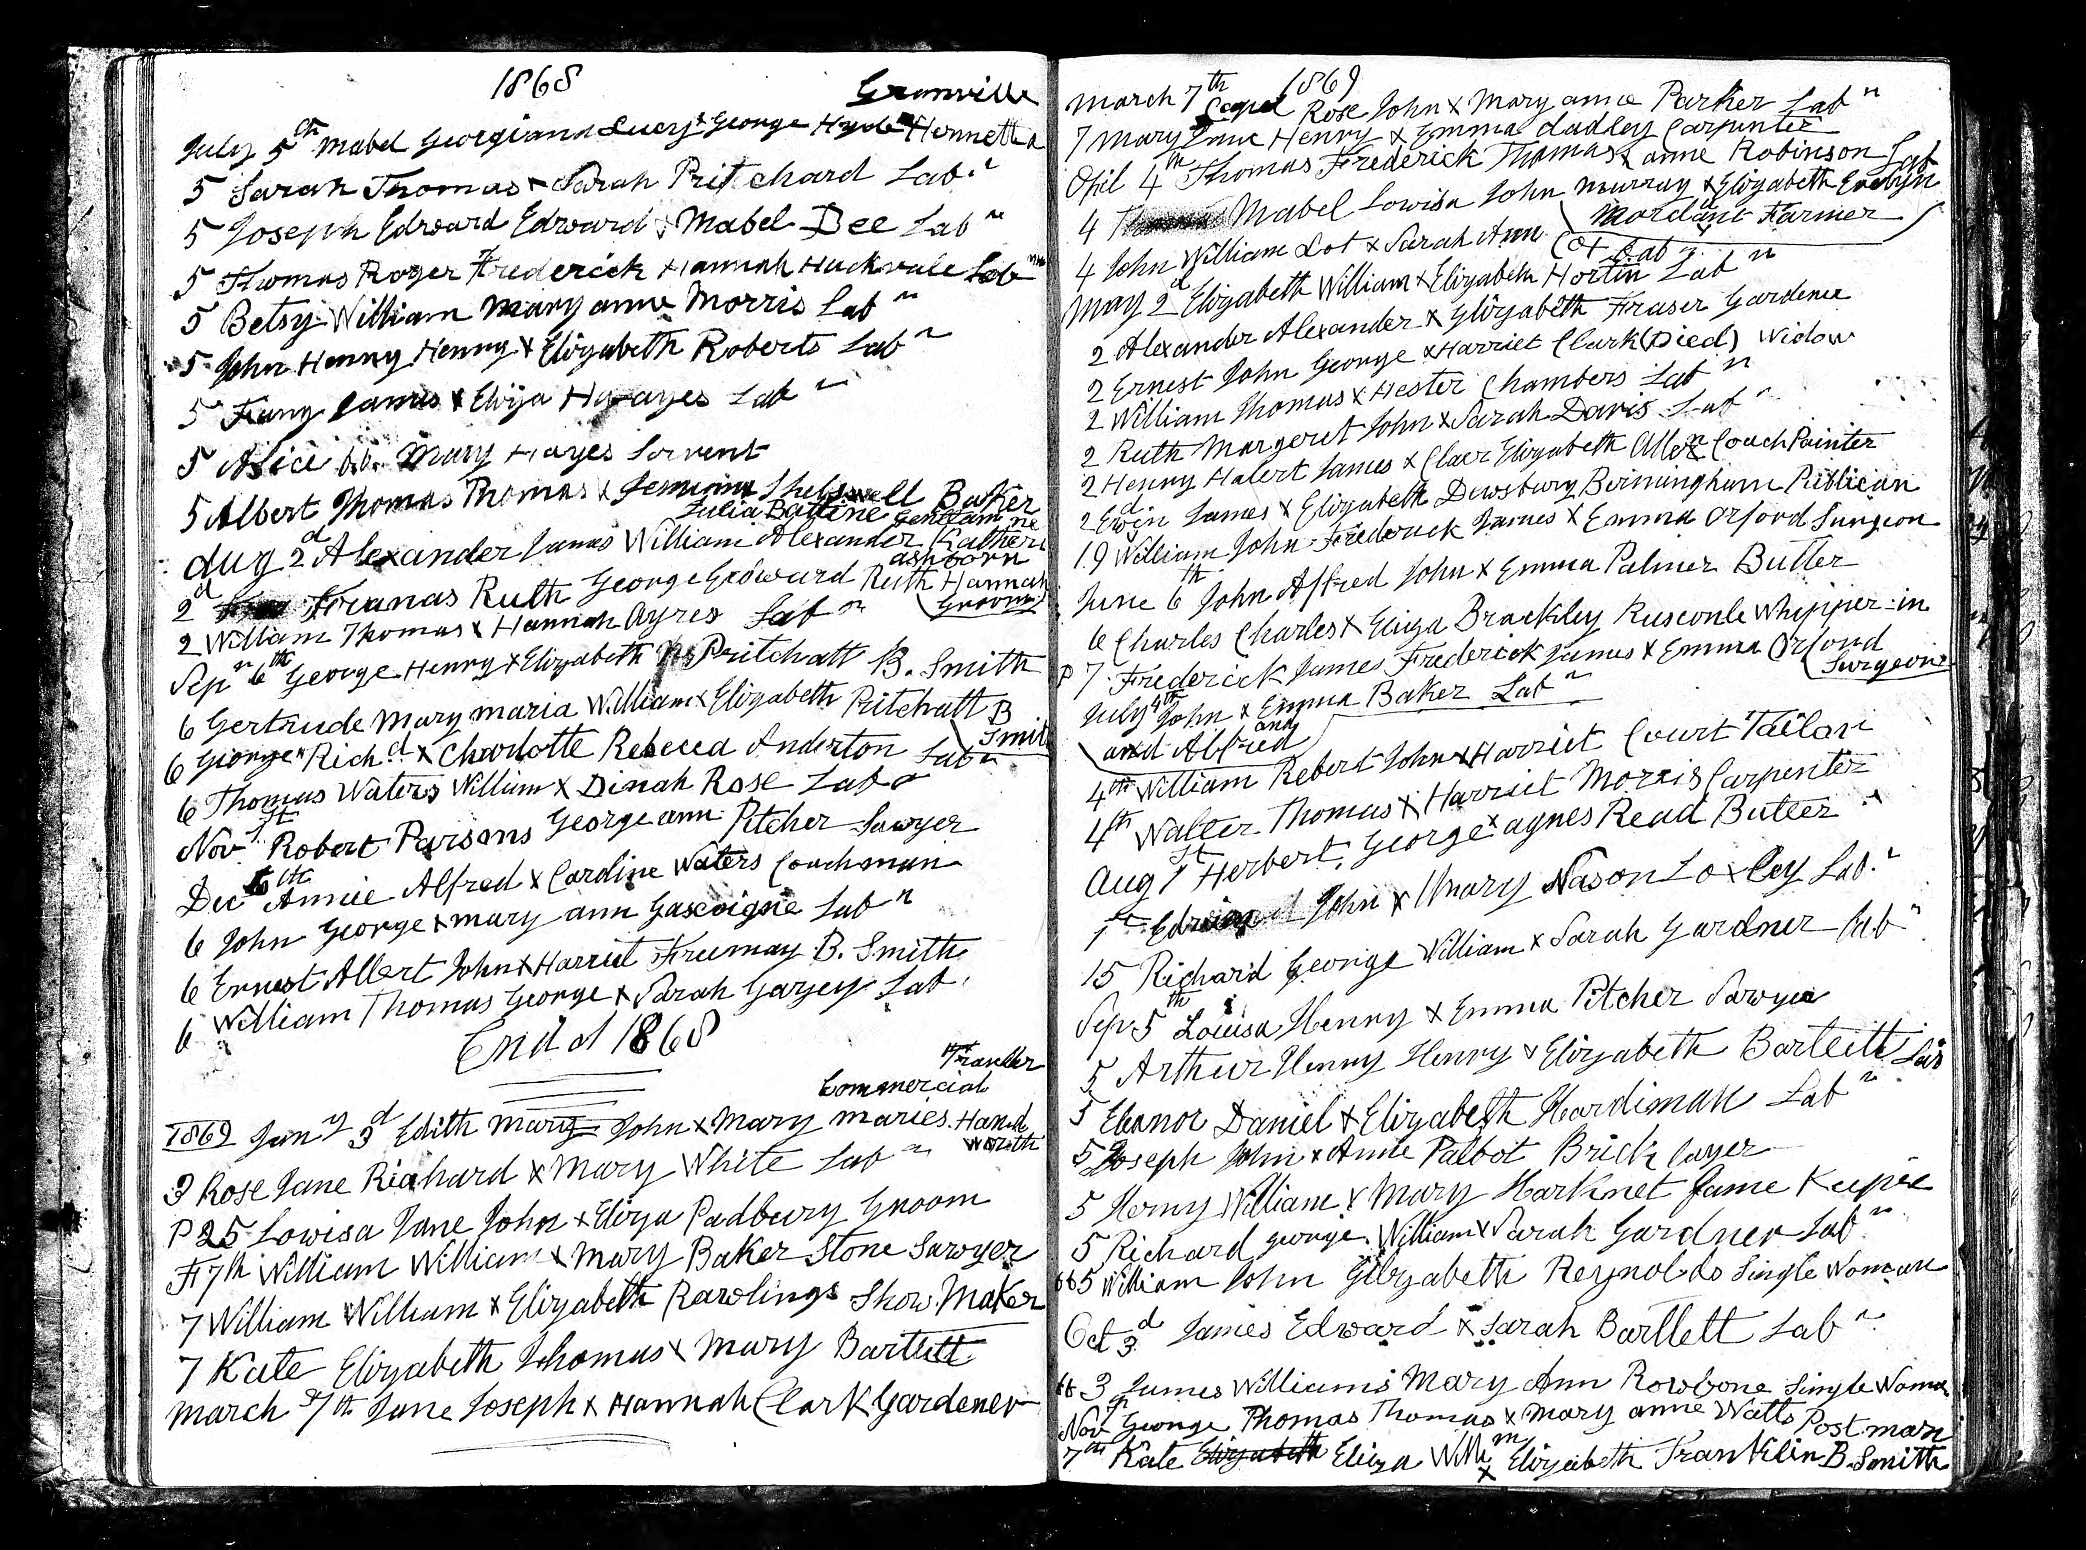 1868
Granville
July 5th Mabel Georgiana Lucy x George Hyde Henneth
5 Sarah Thomas x Sarah Pritchard Labr
5 Joseph Edward Edward x Mabel Dee Labr
5 Thomas Roger Frederick Hannah Huckvale Labr
5 Betsy William Mary anne Morris Labr
5 John Henny Henny x Elizabeth Roberts Labr
5 Fanny James x Eliza Hayes Labr
5 Alice b.b. Mary Hayes Servent
5 Albert Thomas Thomas x Jemima Shelswell Baker
Julia Battine Gentlam
Aug 2d Alexander James William Alexander Katherine
ashborn
2d Franas Ruth George Edward Ruth Hannah
(Groom)
2 William Thomas x Hannah Ayres Labr
Sepr 6th George Henry x Elizabeth Pritchatt B. Smith
6 Gertrude Mary maria William x Elizabeth Pritchatt B
Smit
6 George Richd x Charlotte Rebecca Inderton Labr
6 Thomas Waters William x Dinah Rose Labr
Nov 1st Robert Parsons George ann Pitcher Sawyer
Dec 6th Annie Alfred x Caroline Waters Coachman
6 John George x mary ann Gascoigne Labr
6 Ernest Albert John x Harriet Freeman B. Smith
6 William Thomas George x Sarah Garyey Lab
End of 1868
Traveler
Commercial
1869 Jany 3d Edith Mary John x Mary maries Hand
worth
3 Rose Jane Richard x Mary White Labr
P 25 Lowisa Jane John x Eliza Padbury Groom
F 7th William William x Mary Baker Stone Sawyer
7 William William x Elizabeth Rawlings Show Maker
7 Kate Elizabeth Thomas x Mary Bartlett
March 7th Jane Joseph x Hannah Clark Gardener
1869
March 7th Rose John x Mary anne Parker Labr
7 Mary Jane Henry x Emma dadley Carpenter
April 4th Thomas Frederick Thomas x anne Robinson Lab
4 Mabel Lowisa John Murray x Elizabeth Evelyn
Mordant Farmer
4 John William Lot x Sarah Ann Cot Labr
May 2d Elizabeth William x Elizabeth Hortin Labr
2 Alexander Alexander x Elizabeth Fraser Gardener
2 Ernest John George x Harriet Clark (Died) Widow
2 William Thomas x Hester Chambers Labr
2 Ruth Margeret John x Sarah Davis Labr
2 Henry Halert James x Clare Elizabeth Allen Coach Painter
2 Edwin James x Elizabeth Dewsbury Birmingham Publican
19 William John Frederick James x Emma Orford Surgeon
June 6th John Alfred John x Emma Palmer Butler
6 Charles Charles x Eliza Brackley Rusconle Whipper-in
P 7 Frederick James Frederick James x Emma Orford
(Surgeon)
July 4th John x Emma Baker Labr
and
and Alfred
4th William Rebert John x Harriet Court Tailor
4th Walter Thomas x Harriet Morris Carpenter
Aug 1st Herbert George x agnes Read Butler
1st John x Mary Nason Loxley Labr
15 Richard George William x Sarah Gardner Labr
Sep 5th Louisa Henny x Emma Pitcher Sawyer
5 Arthur Henny Henry x Elizabeth Bartlett Lab
5 Elenor Daniel x Elizabeth Hardiman Labr
5 Joseph John x Anne Palbot Brick layer
5 Henry William x Mary Harknet Game Keeper
5 Richard George William x Sarah Gardner Labr
bb 5 William John Elizabeth Reynolds Single Woman
Oct 3d James Edward x Sarah Bartlett Labr
bb 3 James Williams Mary Ann Rowbone Single Woman
Nov George Thomas Thomas x Mary anne Watts Postman
7th Kate Elizabeth Eliza Willm x Elizabeth Franklin B. Smith